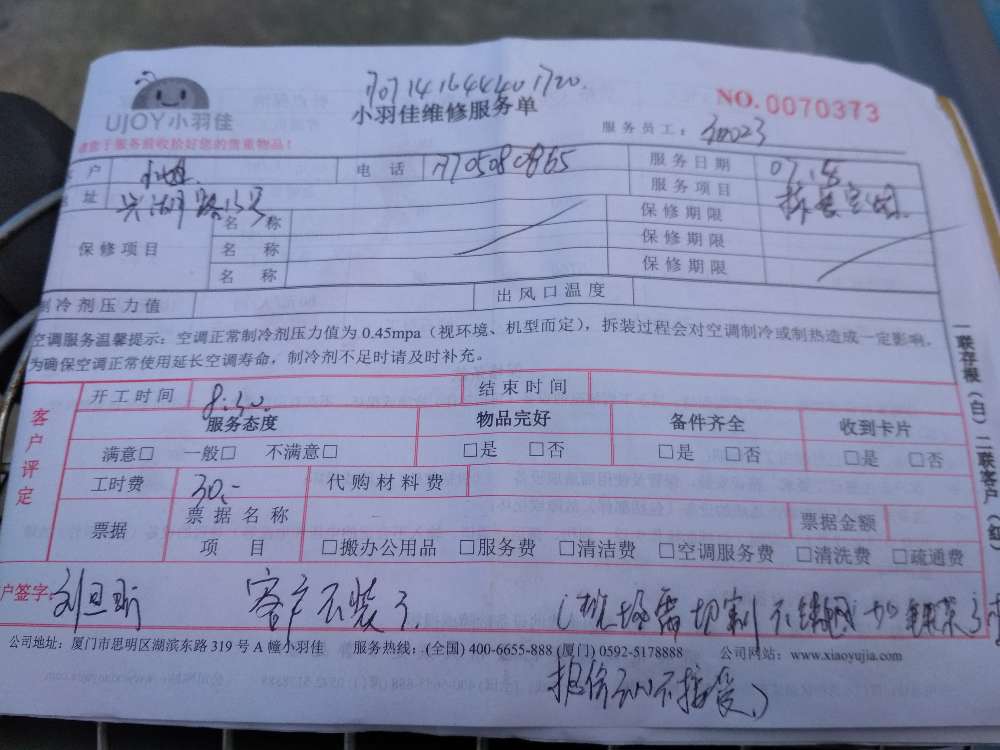 UJOY小羽佳
1707141644401720.
小羽佳维修服务单
NO.0070373
请您于服务前收拾好您的贵重物品!
服务员工:
户
电话
服务日期
07.18
址
路
号
服务项目
保修项目
名称
保修期限
名称
保修期限
名称
保修期限
制冷剂压力值
出风口温度
空调服务温馨提示:空调正常制冷剂压力值为0.45mpa(视环境、机型而定),拆装过程会对空调制冷或制热造成一定影响,
为确保空调正常使用延长空调寿命,制冷剂不足时请及时补充。
客户评定
开工时间
8:30.
结束时间
服务态度
物品完好
备件齐全
收到卡片
满意□ 一般□ 不满意□
□是 □否
□是 □否
□是 □否
工时费
30.-
代购材料费
票据
票据名称
票据金额
项目
□搬办公用品 □服务费 □清洁费 □空调服务费 □清洗费 □疏通费
户签字:
客户不装了
需切割不锈钢
公司地址:厦门市思明区湖滨东路319号A幢小羽佳 服务热线:(全国) 400-6655-888 (厦门) 0592-5178888 公司网站:www.xiaoyujia.com
不接受)
一联存根(白)二联客户(红)